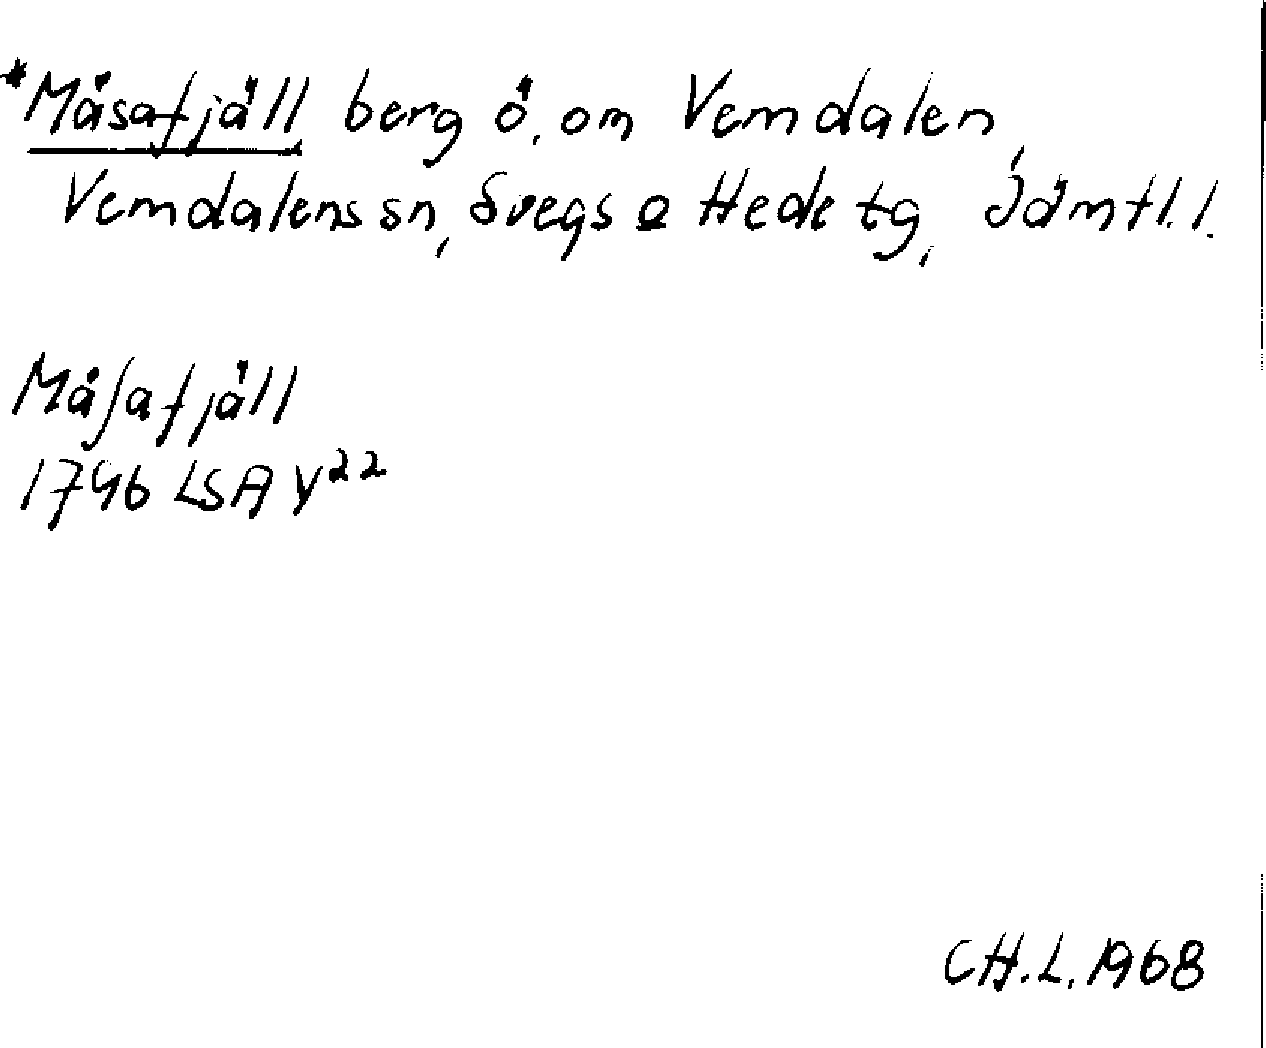 *Måsafjäll berg ö. om Vemdalen,
Vemdalens sn, Svegs o Hede tg, Jämtl. l.
Måſafjäll
1746 LSA V22
CH.L. 1968